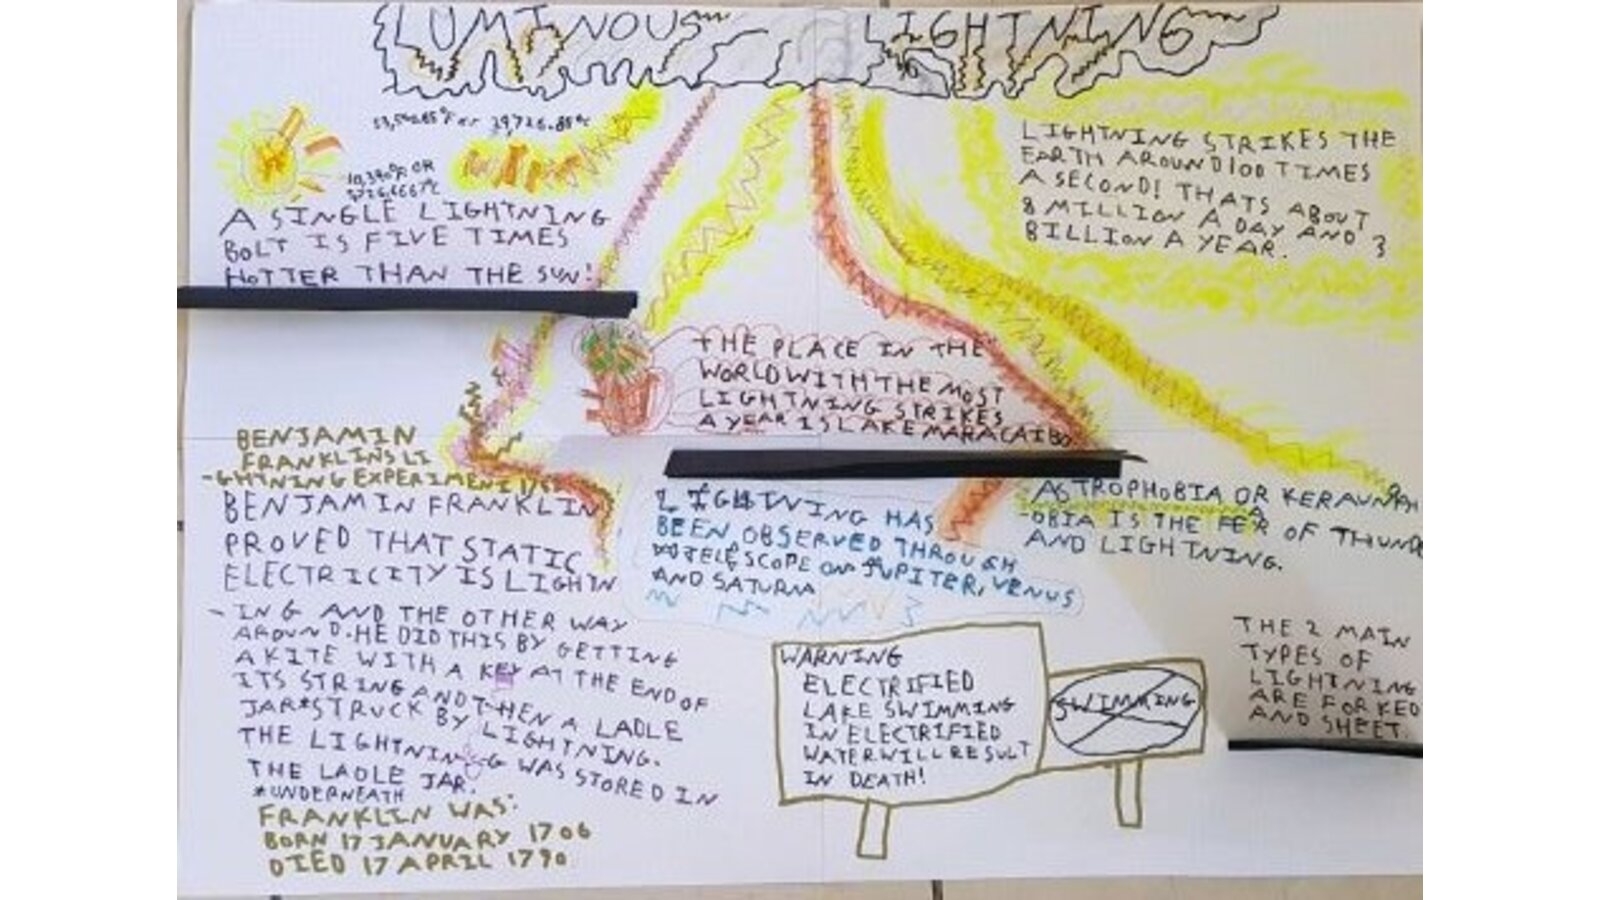 LUMINOUS LIGHTNING
53,540.65°F or 29,726.85°C
10,340°F OR
A SINGLE LIGHTNING
BOLT IS FIVE TIMES
HOTTER THAN THE SUN!
LIGHTNING STRIKES THE
EARTH AROUND 100 TIMES
A SECOND! THATS ABOUT
8 MILLION A DAY AND 3
BILLION A YEAR.
THE PLACE IN THE
WORLD WITH THE MOST
LIGHTNING STRIKES
A YEAR IS LAKE MARACAIBO
BENJAMIN
FRANKLINS LI
-GHTNING EXPERIMENT
BENJAMIN FRANKLIN
PROVED THAT STATIC
ELECTRICITY IS LIGHTN
-ING AND THE OTHER WAY
AROUND. HE DID THIS BY GETTING
A KITE WITH A KEY AT THE END OF
ITS STRING AND THEN A LADLE
JAR* STRUCK BY LIGHTNING.
THE LIGHTNING WAS STORED IN
THE LADLE JAR.
*UNDERNEATH
FRANKLIN WAS:
BORN 17 JANUARY 1706
DIED 17 APRIL 1790
LIGHTNING HAS
BEEN OBSERVED THROUGH
TELESCOPE ON JUPITER, VENUS
AND SATURN
ASTROPHOBIA OR KERAUNOPH
-OBIA IS THE FER OF THUND
AND LIGHTNING.
WARNING
ELECTRIFIED
LAKE SWIMMING
IN ELECTRIFIED
WATER WILL RESULT
IN DEATH!
SWIMMING
THE 2 MAIN
TYPES OF
LIGHTNING
ARE FORKED
AND SHEET.